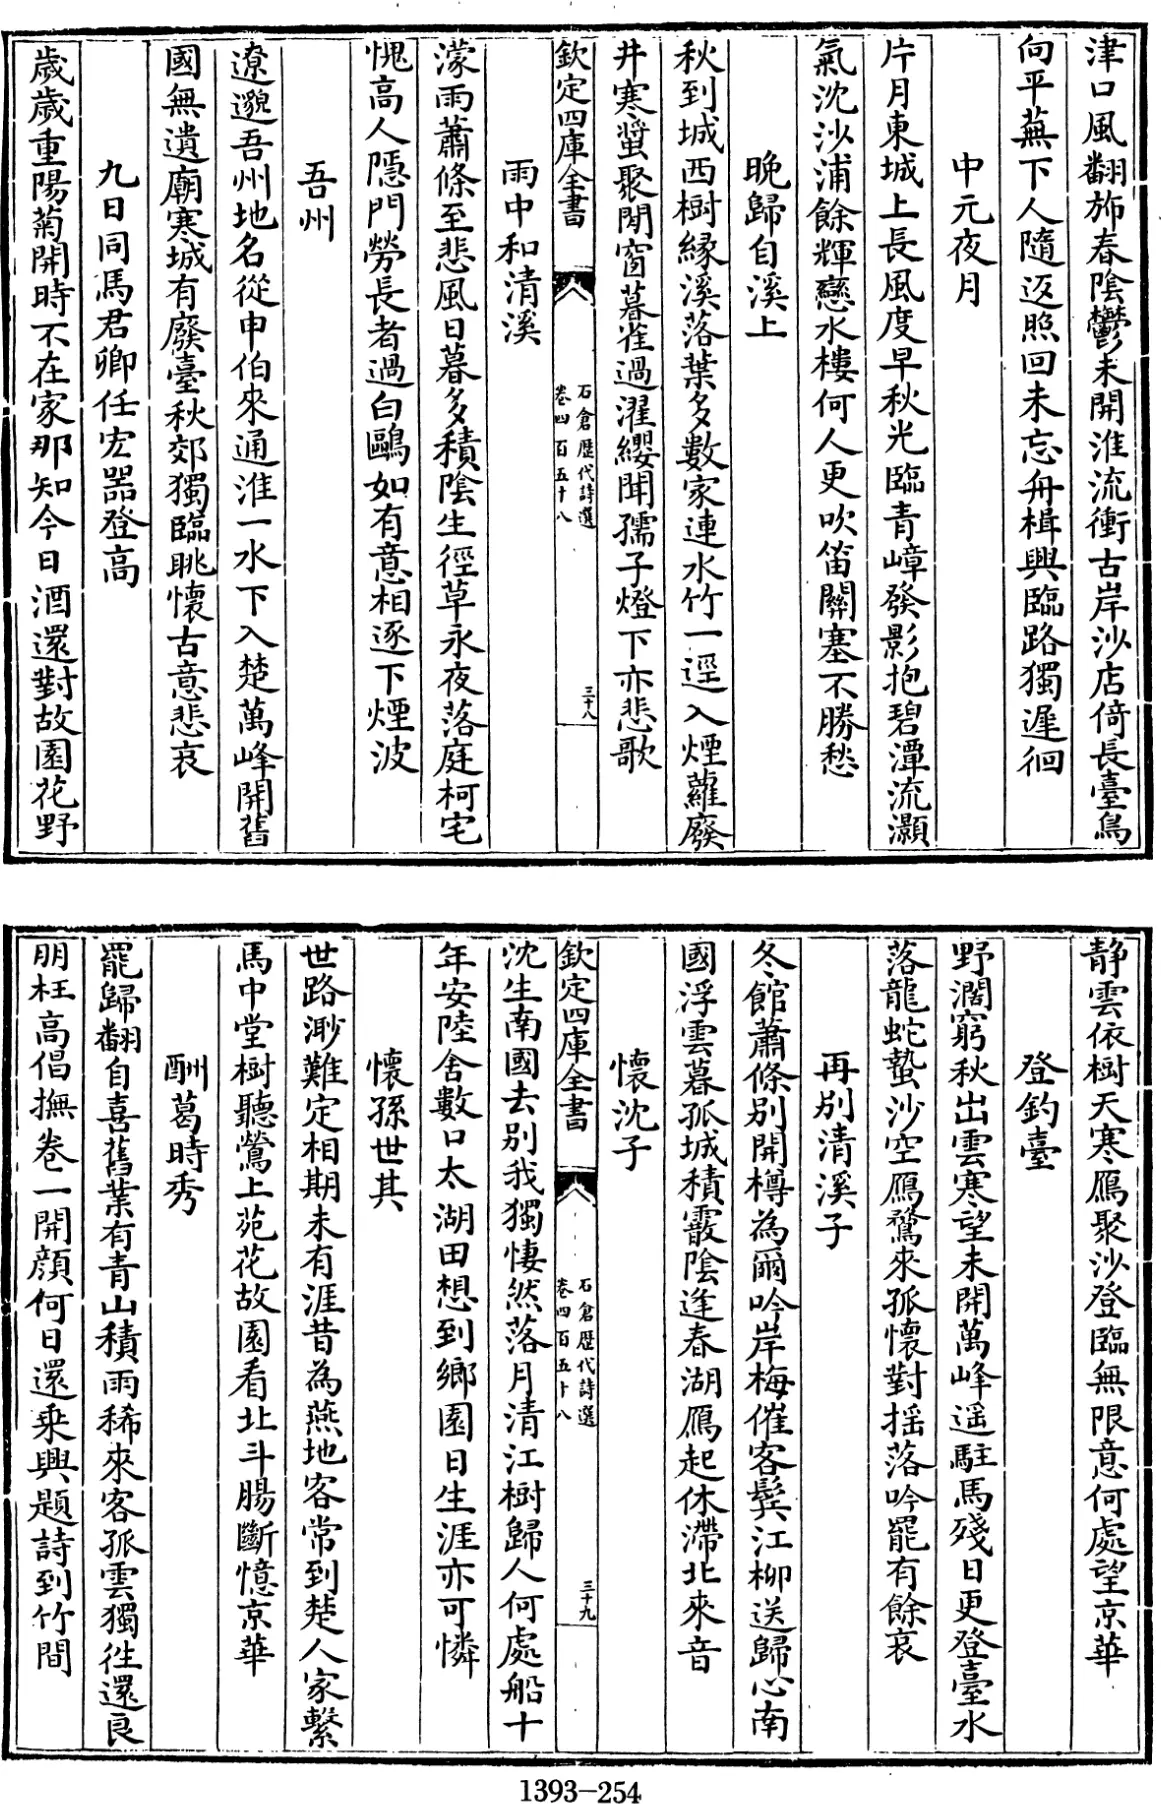 津口風翻斾春陰鬱未開淮流衝古岸沙店倚長臺鳥
向平蕪下人隨返照回未忘舟楫興臨路獨遲徊
中元夜月
片月東城上長風度早秋光臨青嶂發影抱碧潭流灝
氣沈沙浦餘輝戀水樓何人更吹笛關塞不勝愁
晚歸自溪上
秋到城西樹緣溪落葉多數家連水竹一逕入煙蘿廢
井寒螿聚閒窗暮雀過濯纓聞孺子燈下亦悲歌
欽定四庫全書
石倉歷代詩選
卷四百五十八
三十八
雨中和清溪
濛雨蕭條至悲風日暮多積陰生徑草永夜落庭柯宅
愧高人隱門勞長者過白鷗如有意相逐下煙波
吾州
遼邈吾州地名從申伯來通淮一水下入楚萬峰開舊
國無遺廟寒城有廢臺秋郊獨臨眺懷古意悲哀
九日同馬君卿任宏器登高
歲歲重陽菊開時不在家那知今日酒還對故園花野
靜雲依樹天寒鴈聚沙登臨無限意何處望京華
登釣臺
野濶窮秋出雲寒望未開萬峰遥駐馬殘日更登臺水
落龍蛇蟄沙空鴈鶩來孤懷對揺落吟罷有餘哀
再别清溪子
冬館蕭條别開樽為爾吟岸梅催客鬓江柳送歸心南
國浮雲暮孤城積霰陰逢春湖鴈起休滯北來音
懷沈子
欽定四庫全書
石倉歷代詩選
卷四百五十八
三十九
沈生南國去别我獨悽然落月清江樹歸人何處船十
年安陸舍數口太湖田想到鄉園日生涯亦可憐
懷孫世其
世路渺難定相期未有涯昔為燕地客常到楚人家繫
馬中堂樹聽鶯上苑花故園看北斗腸斷憶京華
酬葛時秀
罷歸翻自喜舊業有青山積雨稀來客孤雲獨往還良
朋枉高倡撫卷一開顔何日還乘興題詩到竹間
1393-254